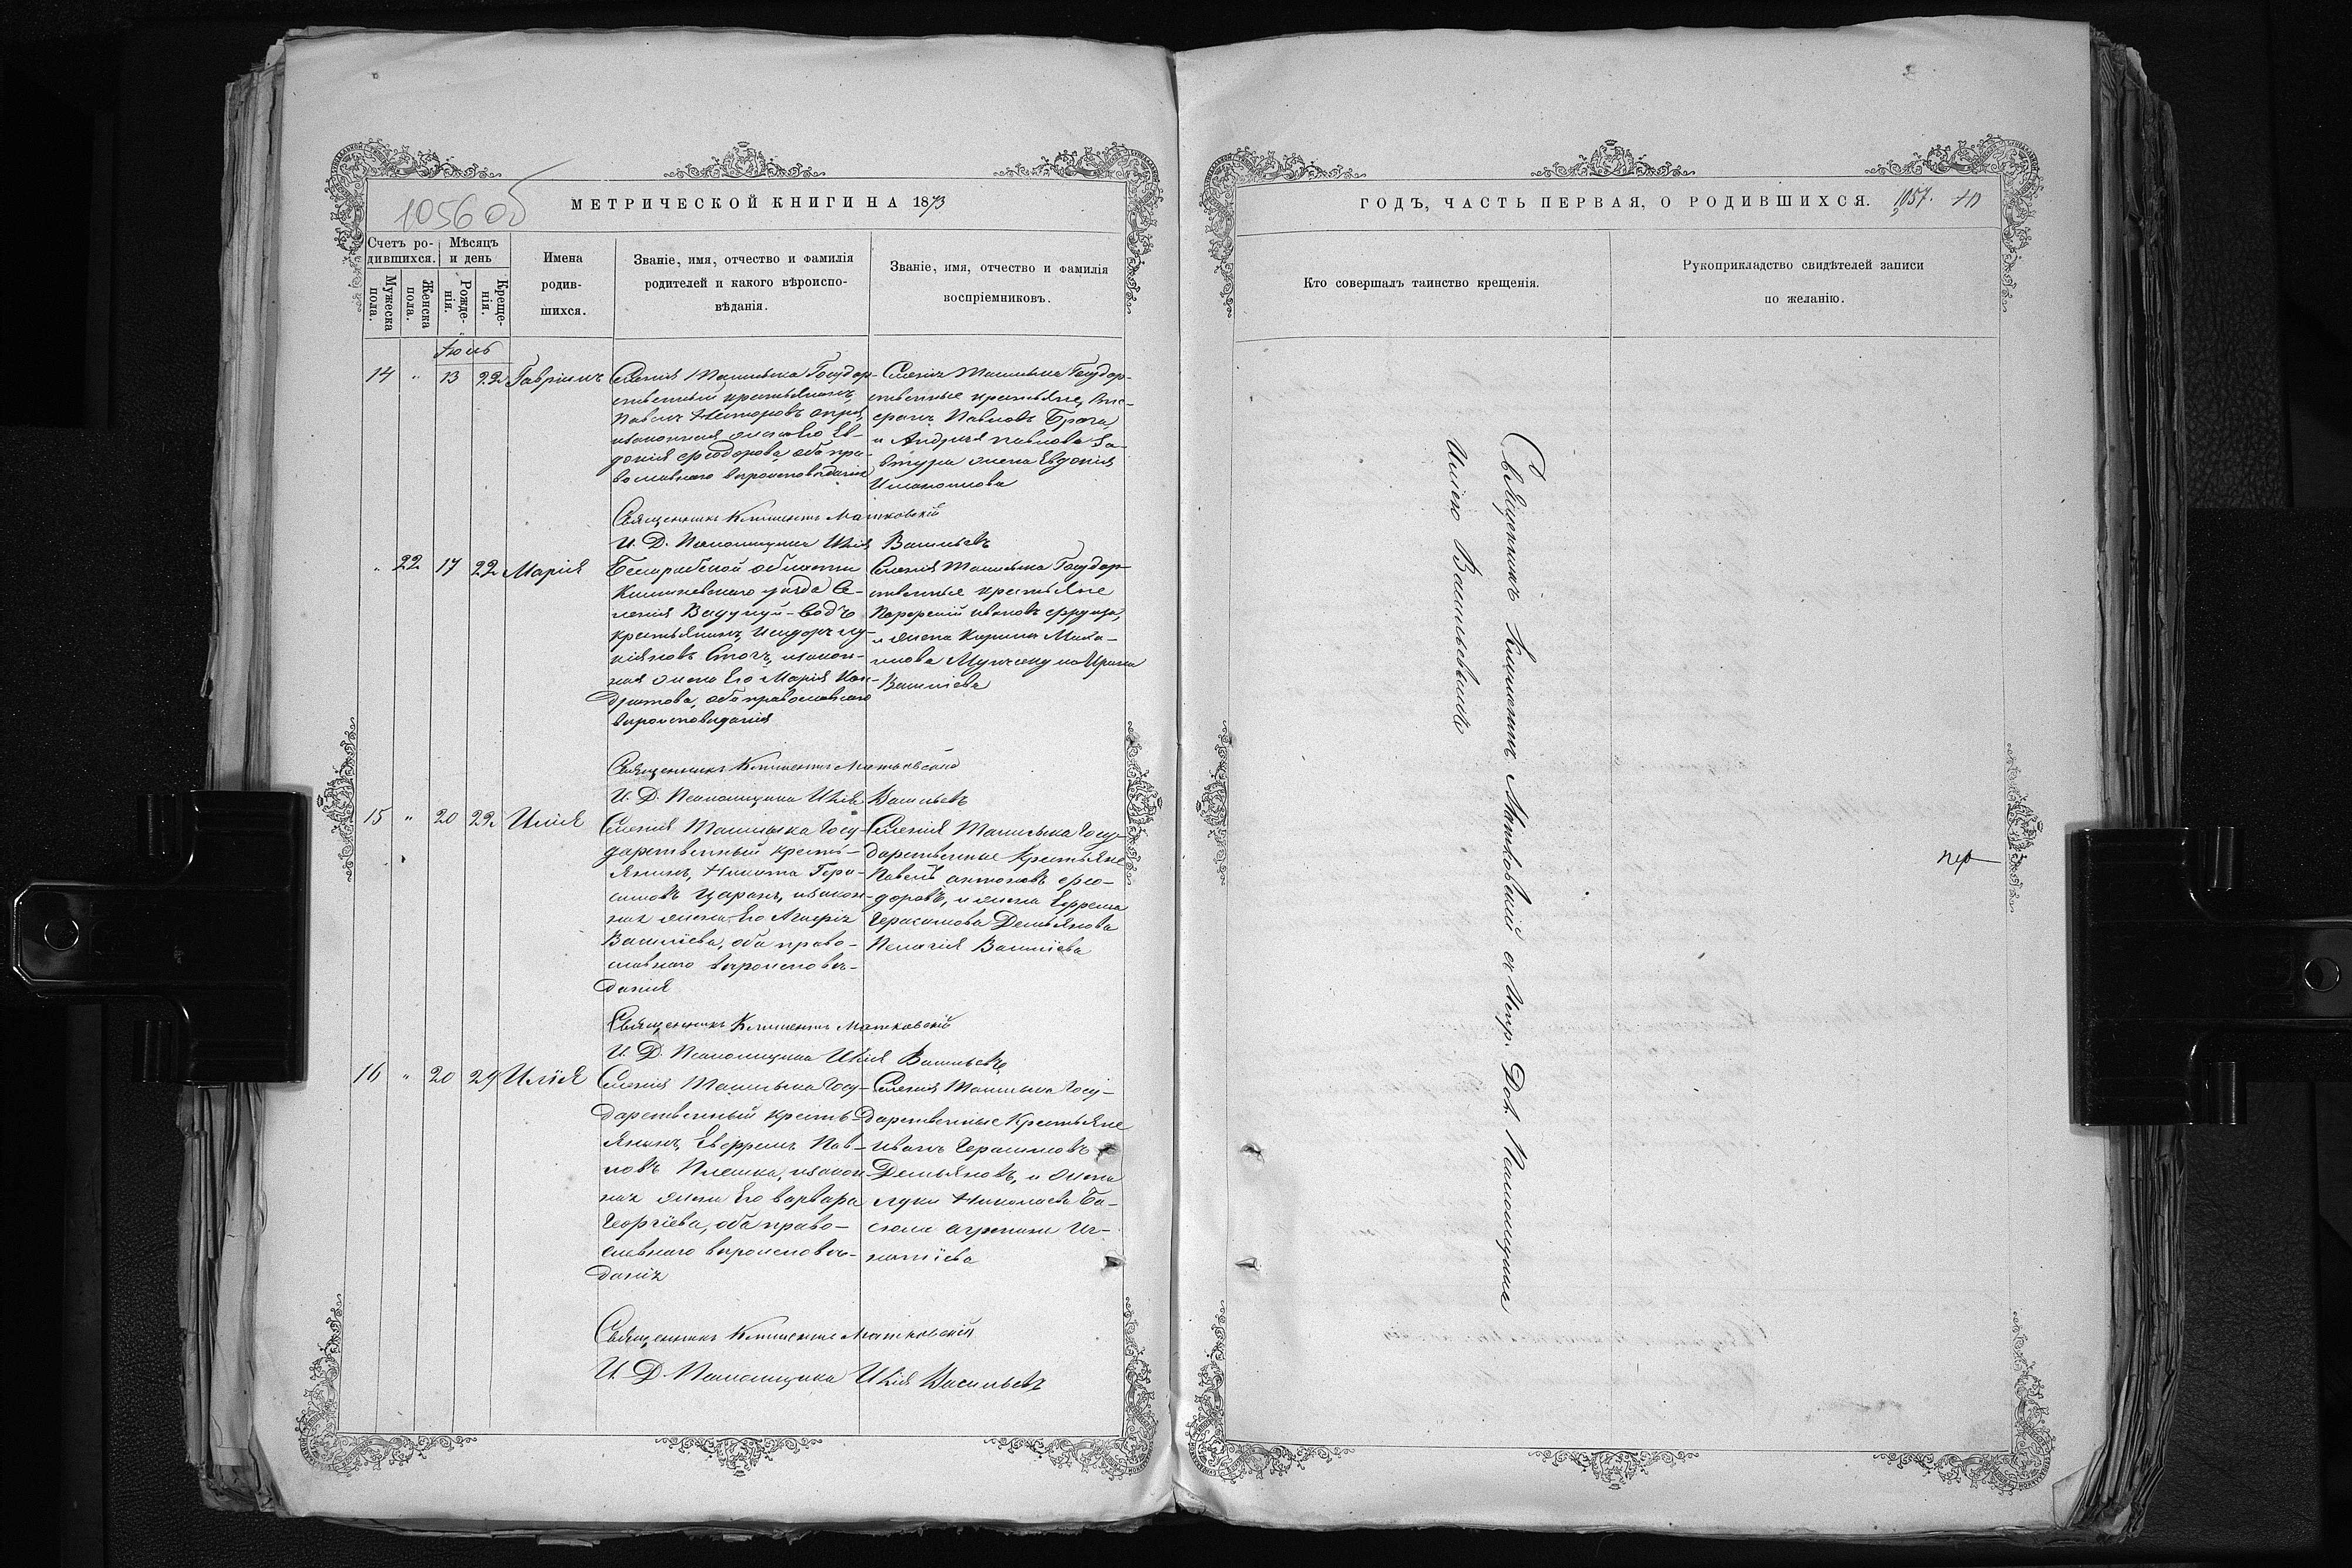 1056 об
МЕТРИЧЕСКОЙ КНИГИ НА 1873
Счетъ ро-
дившихся.
Мѣсяцъ
и день
Мужеска
пола.
Женска
пола.
Рожде-
нія.
Креще-
нія.
Имена
родив-
шихся.
Званіе, имя, отчество и фамилія
родителей и какого вѣроиспо-
вѣданія.
Званіе, имя, отчество и фамилія
воспріемниковъ.
Іюль
14 " 13 22 Гавриилъ
Селенія Ташлыка Государ-
ственный крестьянинъ
Павелъ
изаконная жена его Ев-
докія Феодорова, оба пра-
вославнаго вѣроисповѣданія
Селенія Ташлыка Государ-
ственные крестьяне,
Павловъ
и Андрея Павлова
жена Евдокія
Священникъ Климентъ Матковскій
И. Д. Псаломщика Илія Васильевъ
" 22 17 22 Марія
Бессарабской области
Кишиневскаго уѣзда Се-
ленія Вадулуй-Водъ
крестьянинъ, Исидоръ Лу-
кіяновъ изакон-
ная жена Его Марія Кон-
дратова, оба православнаго
вѣроисповѣданія
Селенія Ташлыка Государ-
ственные крестьяне
Порфирій Ивановъ
и жена Кирила Миха-
илова Ирина
Василіева
Священникъ Климентъ Матковскій
И. Д. Псаломщика Илія Васильевъ
15 " 20 22 Илія
Селенія Ташлыка Госу-
дарственный кресть-
янинъ, Никита Гера-
симовъ Царанъ, изакон-
ная жена Его
Василіева, оба право-
славнаго вѣроисповѣ-
данія
Селенія Ташлыка Госу-
дарственные Крестьяне
Павелъ Антоновъ Фео-
доровъ, и жена Ефрема
Герасимова Демьянова
Пелагія Василіева
Священникъ Климентъ Матковскій
И. Д. Псаломщика Илія Васильевъ
16 " 20 29 Илія
Селенія Ташлыка Госу-
дарственный кресть-
янинъ, Евфремъ Пав-
ловъ Плешка, изакон-
ная жена Его Варвара
Георгіева, оба право-
славнаго вѣроисповѣ-
данія
Селенія Ташлыка Госу-
дарственные Крестьяне
Иванъ Герасимовъ
Демьяновъ, и жена
Луки Николаева Ба-
Иг-
натіева
Священникъ Климентъ Матковскій
И. Д. Псаломщика Илія Васильевъ
ГОДЪ, ЧАСТЬ ПЕРВАЯ, О РОДИВШИХСЯ.
1057.
Кто совершалъ таинство крещенія.
Рукоприкладство свидѣтелей записи
по желанію.
Священникъ Климентъ Матковскій съ Испр. Дол. Псаломщика
Иліею Васильевымъ